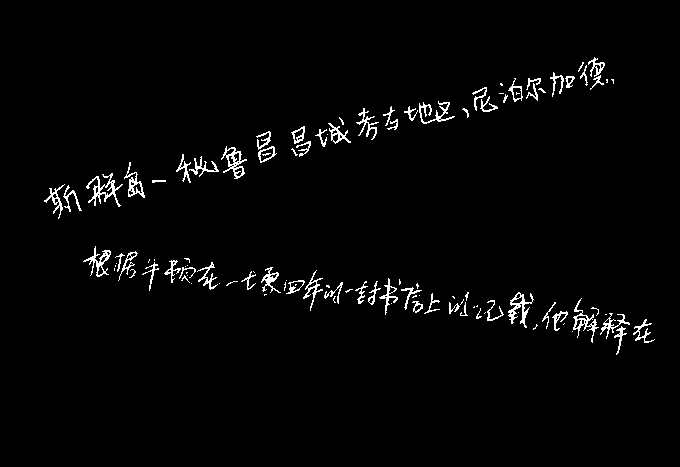 斯群岛一秘鲁昌昌城考古地区、尼泊尔加德
根据牛顿在一七零四年的一封书信上的记载,他解释在